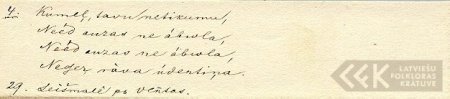 4.
Kumeļ, tavu netikumu,
Neēd auzas ne ābola,
Neēd auzas ne ābola,
Negez rāva ūdentiņa.
29. Leišmalē pr
LATVIEŠU
FOLKLORAS
KRĀTUVE